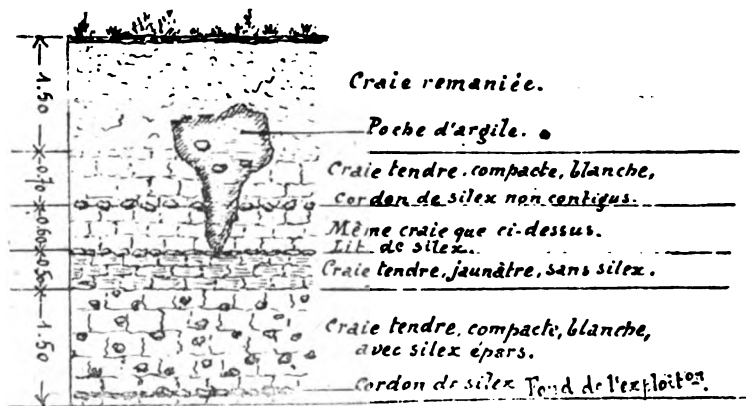 1.50
Craie remaniée.
Poche d'argile.
0.70
Craie tendre, compacte, blanche,
Cordon de silex non contigus.
0.60
Même craie que ci-dessus.
Lit de silex.
0.50
Craie tendre, jaunâtre, sans silex.
1.50
Craie tendre, compacte, blanche,
avec silex épars.
Cordon de silex Fond de l'exploiton.